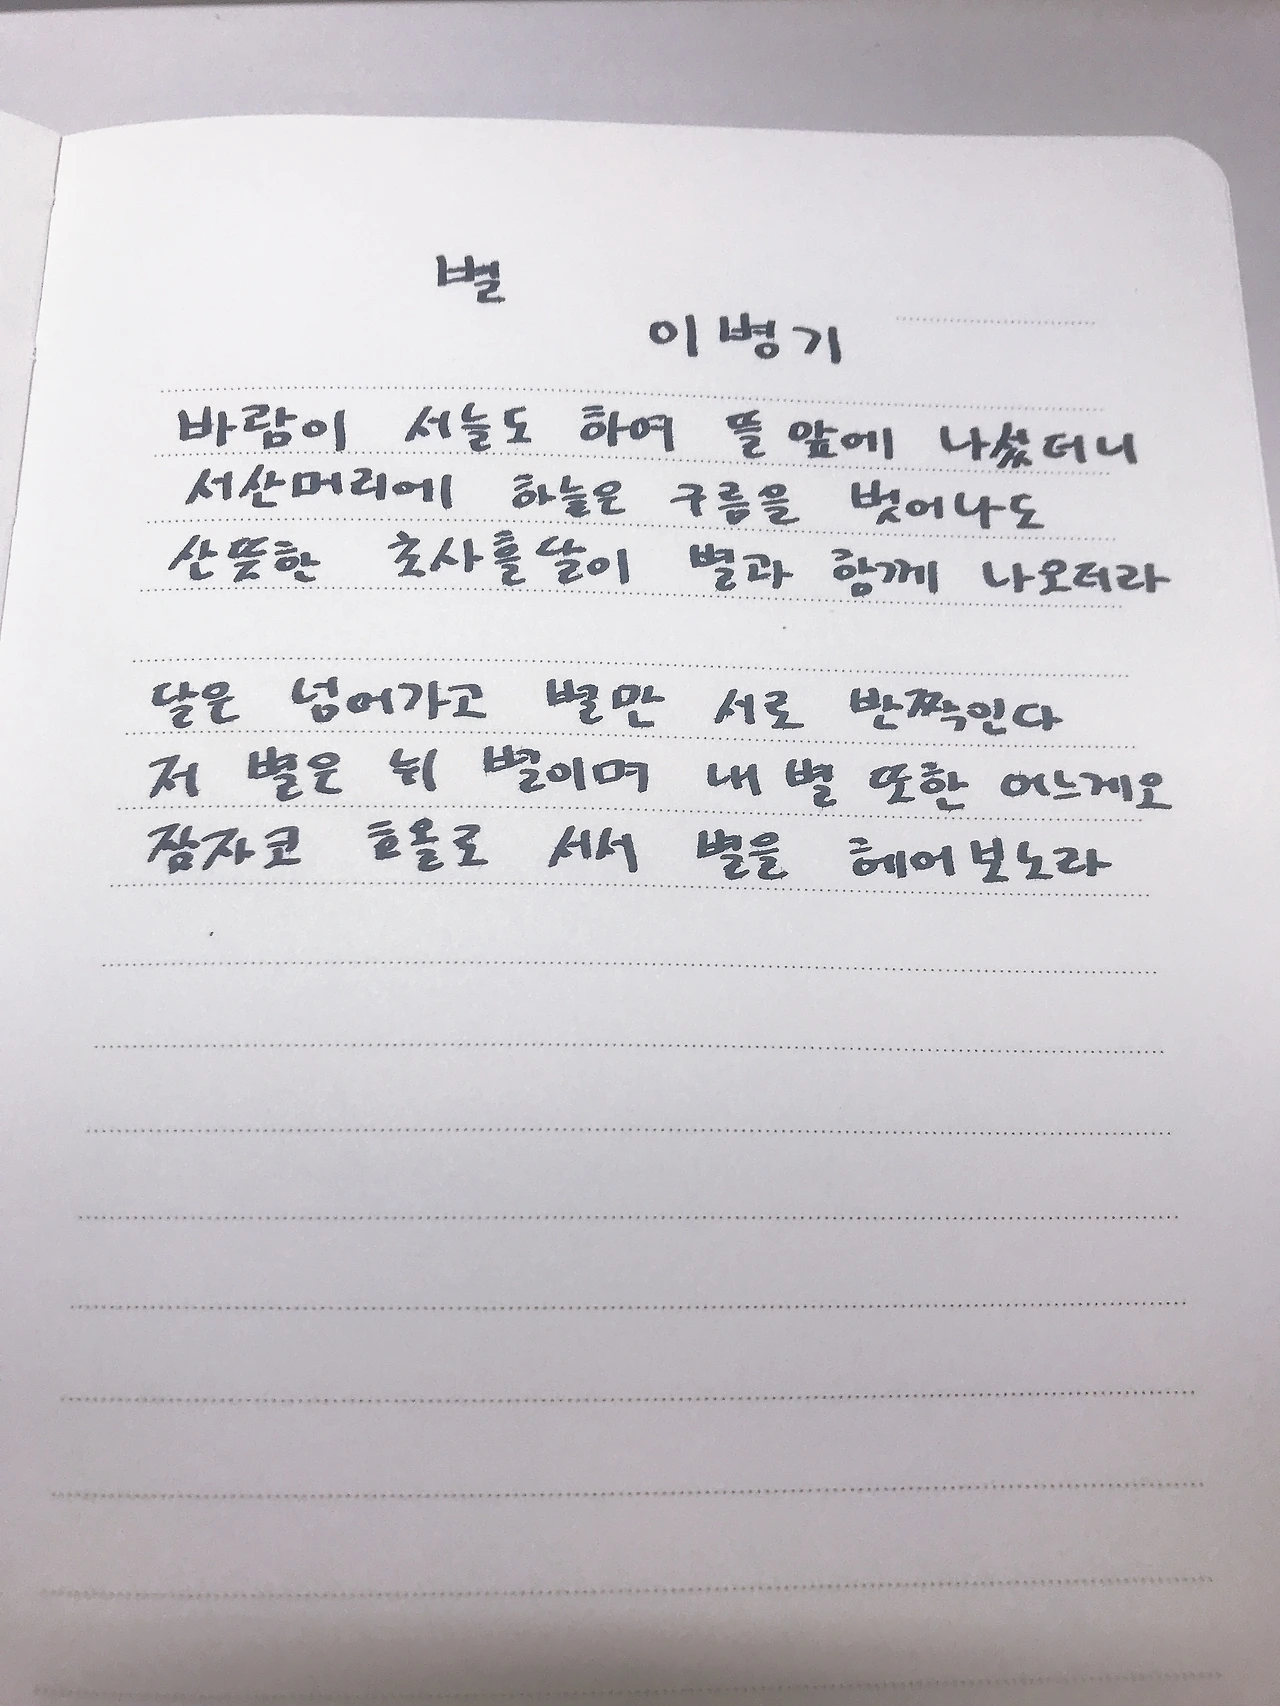 별
이병기
바람이 서늘도 하여 뜰 앞에 나섰더니
서산머리에 하늘은 구름을 벗어나도
산뜻한 초사흘달이 별과 함께 나오더라
달은 넘어가고 별만 서로 반짝인다
저 별은 뉘 별이며 내 별 또한 어느게오
잠자코 호올로 서서 별을 헤어보노라